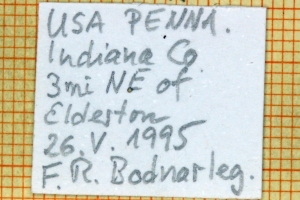 USA PENNA.
Indiana Co.
3mi NE of
Elderton
26.V.1995
F.R. Bodnar leg.